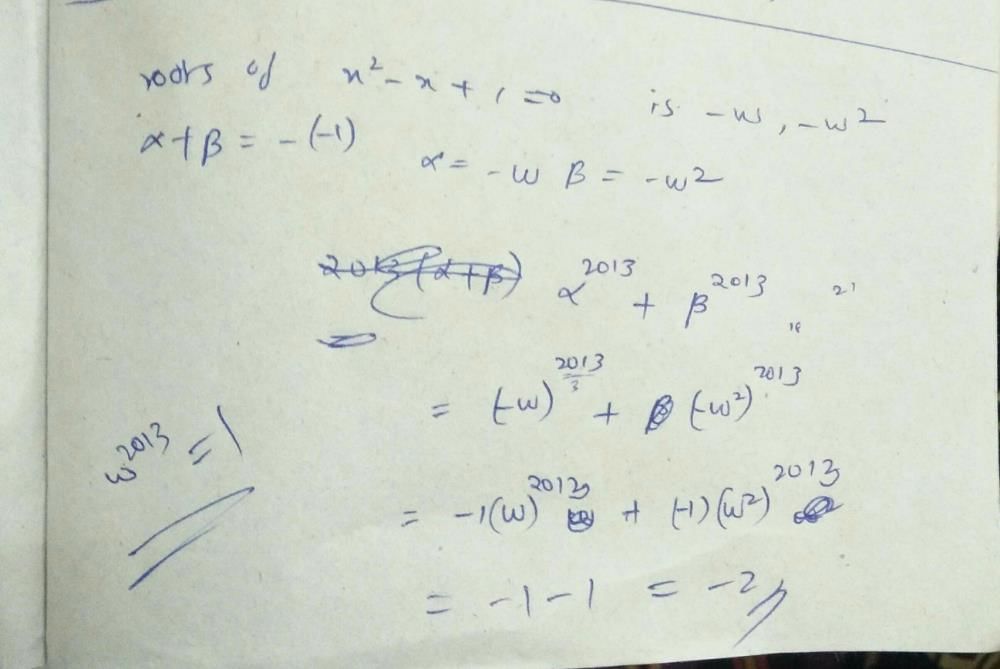 roots of x² - x + 1 = 0 is -w, -w²
α + β = -(-1) α = -w β = -w²
2013(α+β) α^2013 + β^2013 21
18
= (-w)^2013 + (-w²)^2013
3
w^2013 = 1
= -1(w)^2013 + (-1)(w²)^2013
= -1 - 1 = -2